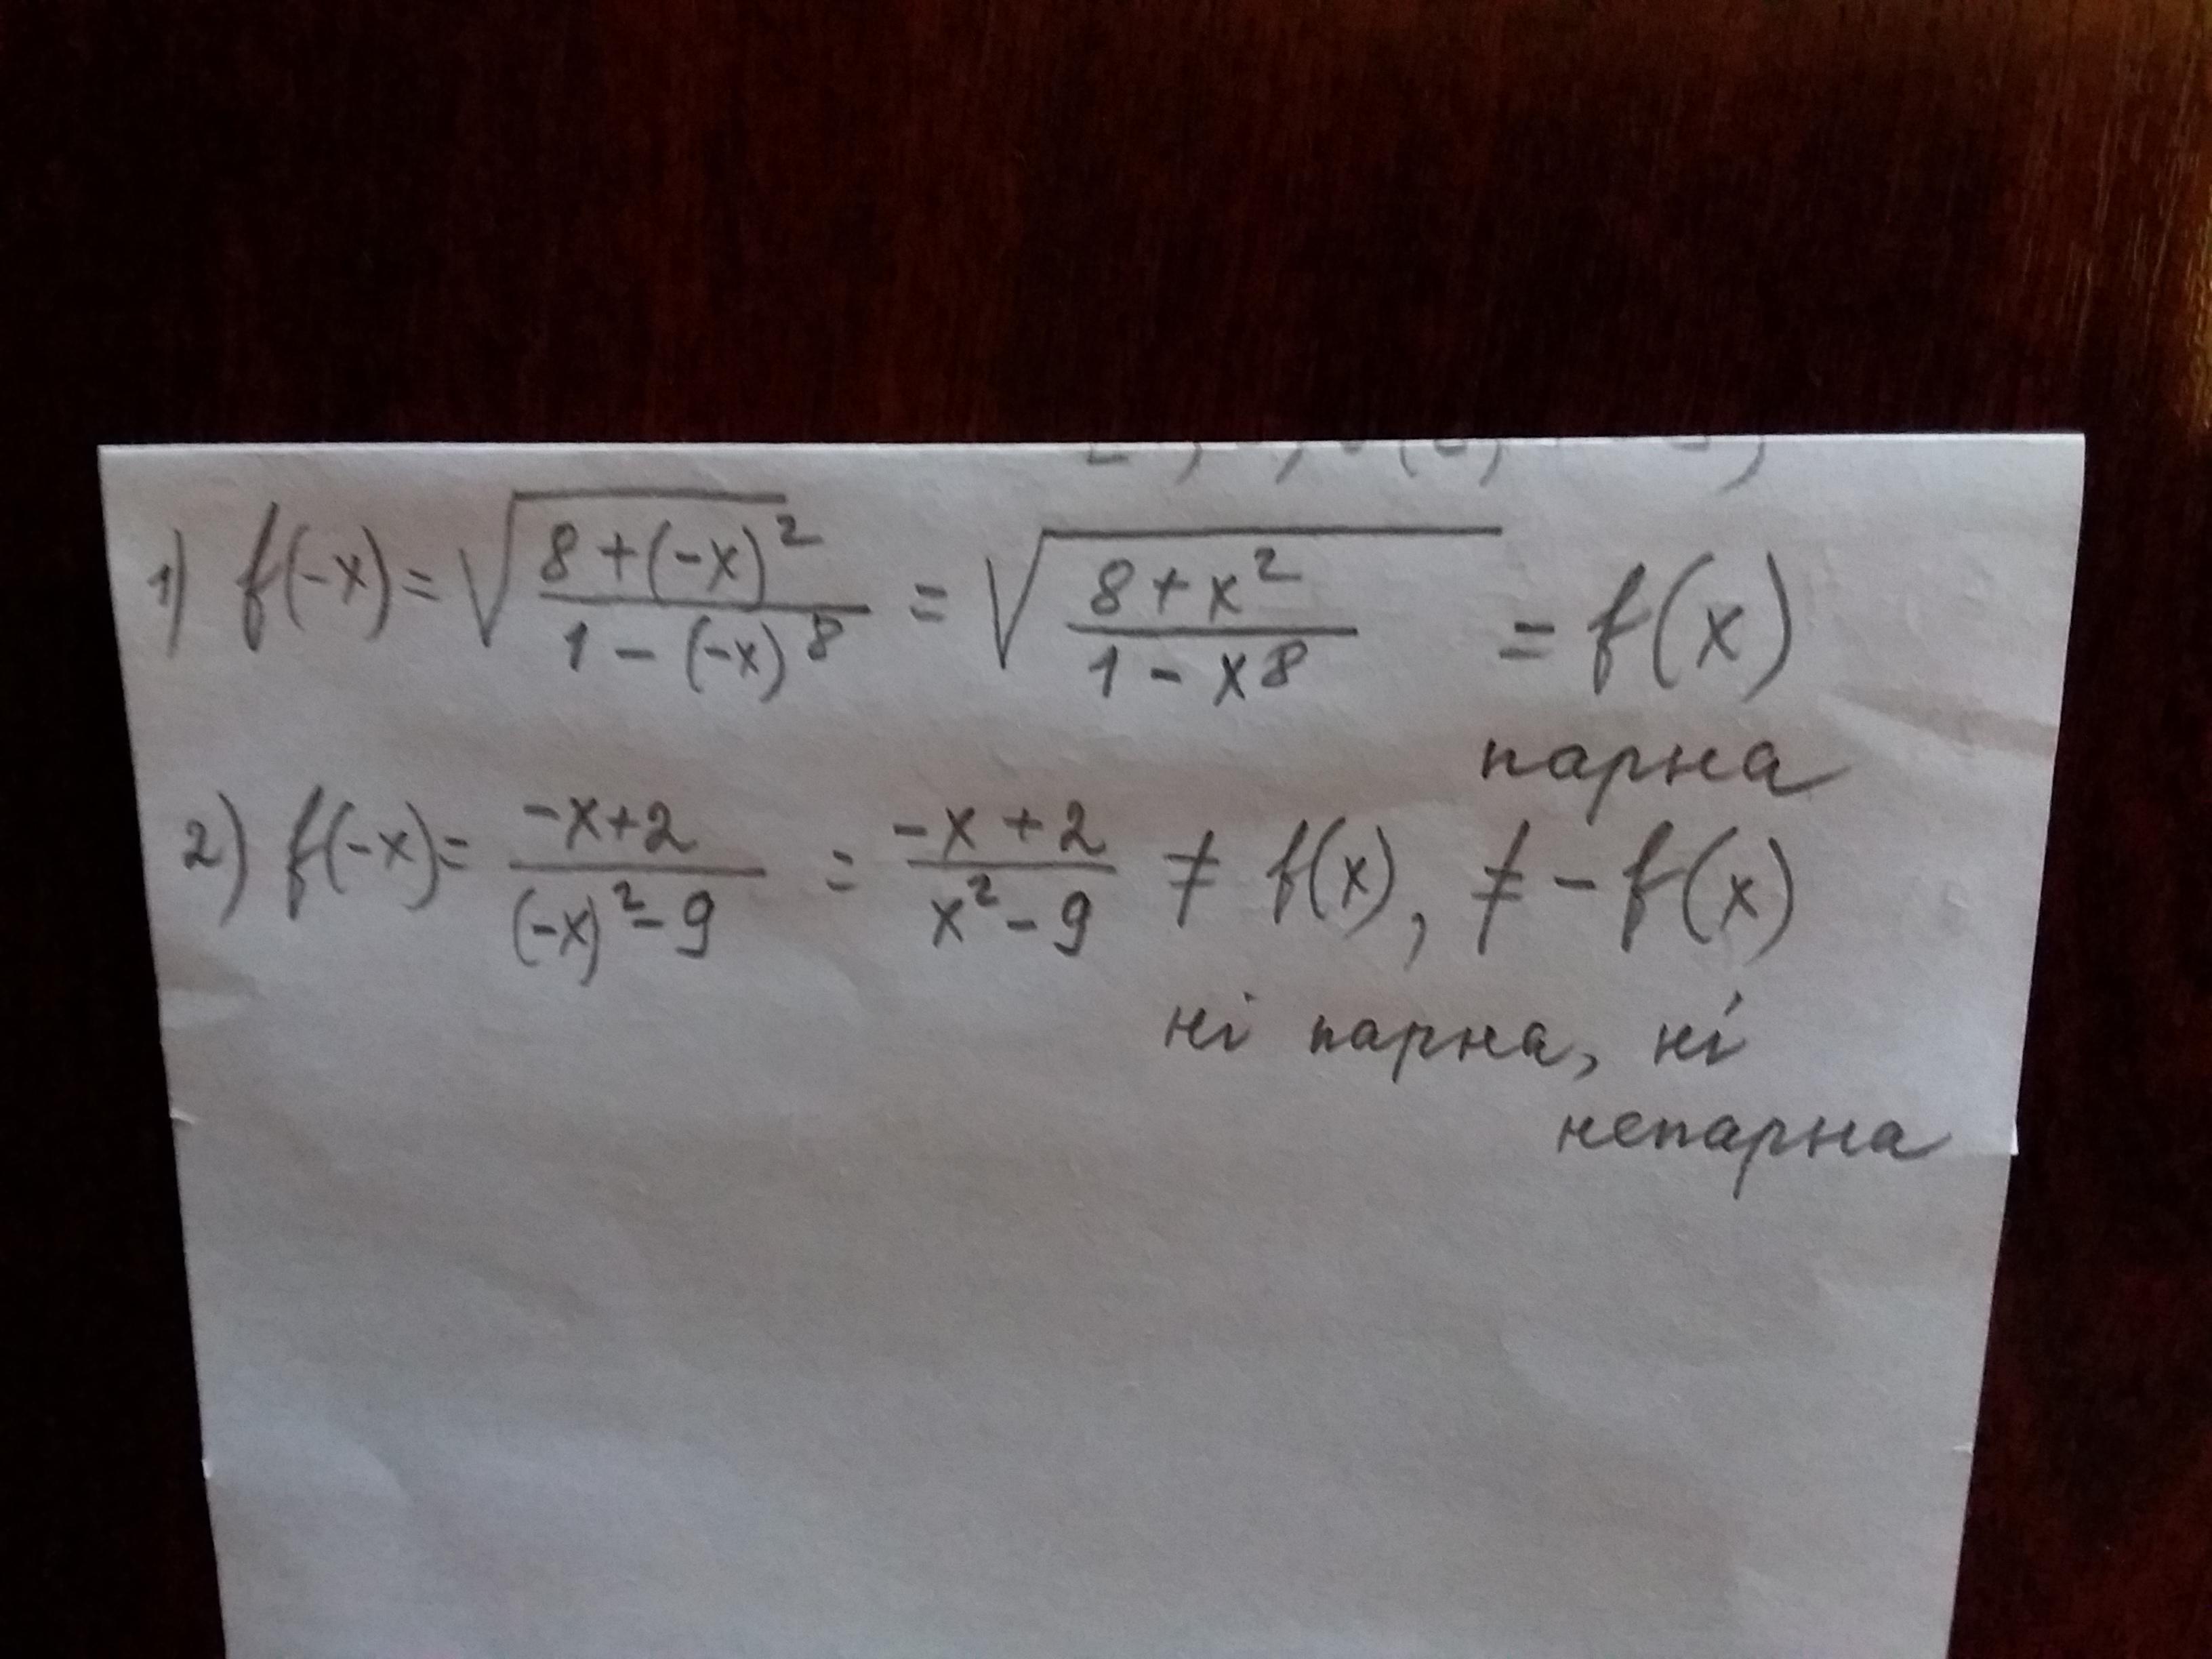 1) f(-x) = √((8+(-x)²)/(1-(-x)⁸)) = √((8+x²)/(1-x⁸)) = f(x)
парна
2) f(-x) = (-x+2)/((-x)²-9) = (-x+2)/(x²-9) ≠ f(x), ≠ -f(x)
ні парна, ні
непарна